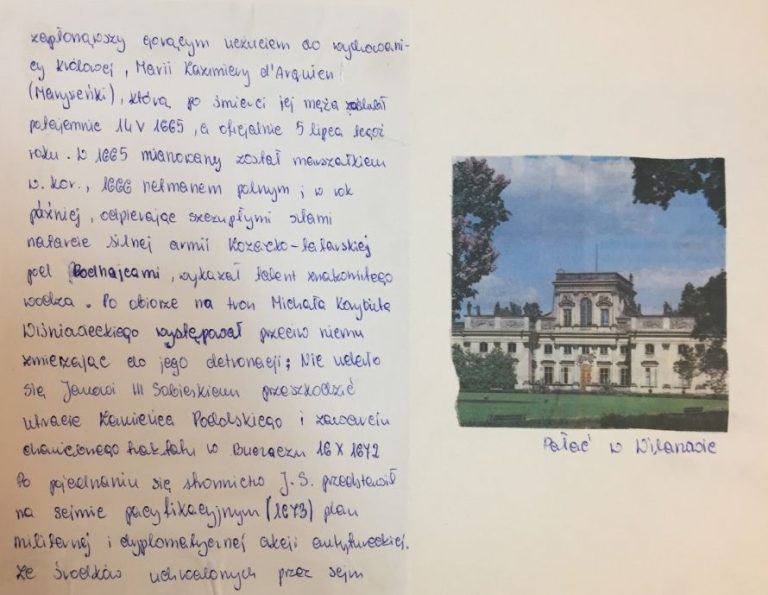 zapłonąwszy gorącym uczuciem do wychowani-
cy królowej, Marii Kazimiery d'Arquien
(Marysieńki), którą po śmierci jej męża zaślubił
potajemnie 14 V 1665, a oficjalnie 5 lipca tegoż
roku. W 1665 mianowany został marszałkiem
w. kor., 1666 hetmanem polnym; w rok
później, odpierając szczupłymi siłami
natarcie silnej armii Kozacko-tatarskiej
pod Podhajcami, wykazał talent znakomitego
wodza. Po obiorze na tron Michała Korybuta
Wiśniowieckiego występował przeciw niemu
zmierzając do jego detronacji; Nie udało
się Janowi III Sobieskiemu przeszkodzić
utracie Kamieńca Podolskiego i zawarciu
haniebnego traktatu w Buczaczu 16 X 1672
Po pojednaniu się stronnictw J. S. przedstawił
na sejmie pacyfikacyjnym (1673) plan
militarnej i dyplomatycznej akcji antytureckiej.
Ze środków uchwalonych przez sejm
Pałac w Wilanowie